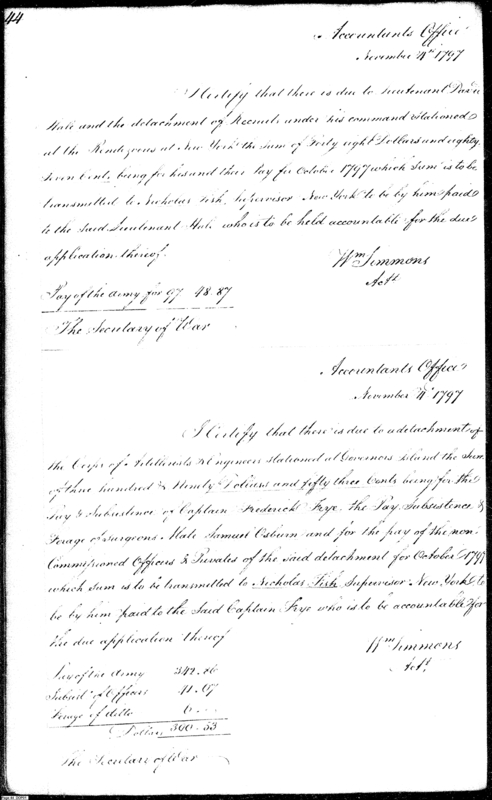 44
Accountants Office
November 4th 1797
I Certify that there is due to Lieutenant David
Hale and the detachment of Recruits under his command stationed
at the Rendezvous at New York the sum of Forty eight Dollars and eighty
seven Cents being for his and their Pay for October 1797 which sum is to be
transmitted to Nicholas Fish, Supervisor New York to be by him paid
to the said Lieutenant Hale who is to be held accountable for the due
application thereof.
Wm Simmons
Actt
Pay of the Army for 97 48.87
The Secretary of War
Accountants Office
November 4th 1797
I Certify that there is due to a detachment of
the Corps of Artillerists & Engineers stationed at Governors Island the Sum
of three hundred & Ninety Dollars and fifty three Cents being for the
Pay & Subsistence of Captain Frederick Frye the Pay Subsistence &
Forage of Surgeons Mate Samuel Osburn and for the pay of the non
Commissioned Officers & Privates of the said detachment for October 1797
which sum is to be transmitted to Nicholas Fish Supervisor New York to
be by him paid to the said Captain Frye who is to be accountable for
the due application thereof
Wm Simmons
Actt
Pay of the Army 342.86
Subsist of Officers 41.67
Forage of ditto 6...
Dollars 390.53
The Secretary of War